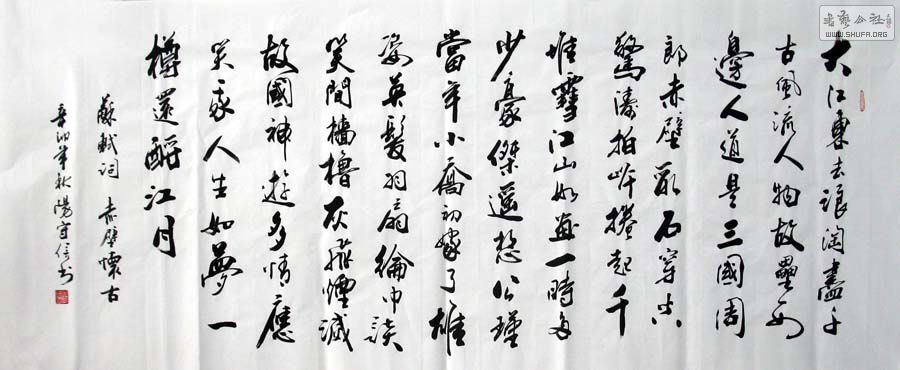 大江東去浪淘盡千
古風流人物故壘西
邊人道是三國周
郎赤壁亂石穿空
驚濤拍岸捲起千
堆雪江山如畫一時多
少豪傑遥想公瑾
當年小喬初嫁了雄
姿英髮羽扇綸巾談
笑間檣櫓灰飛煙滅
故國神遊多情應
笑我人生如夢一
樽還酹江月
蘇軾詞 赤壁懷古
辛卯年秋守信书
WWW.SHUFA.ORG